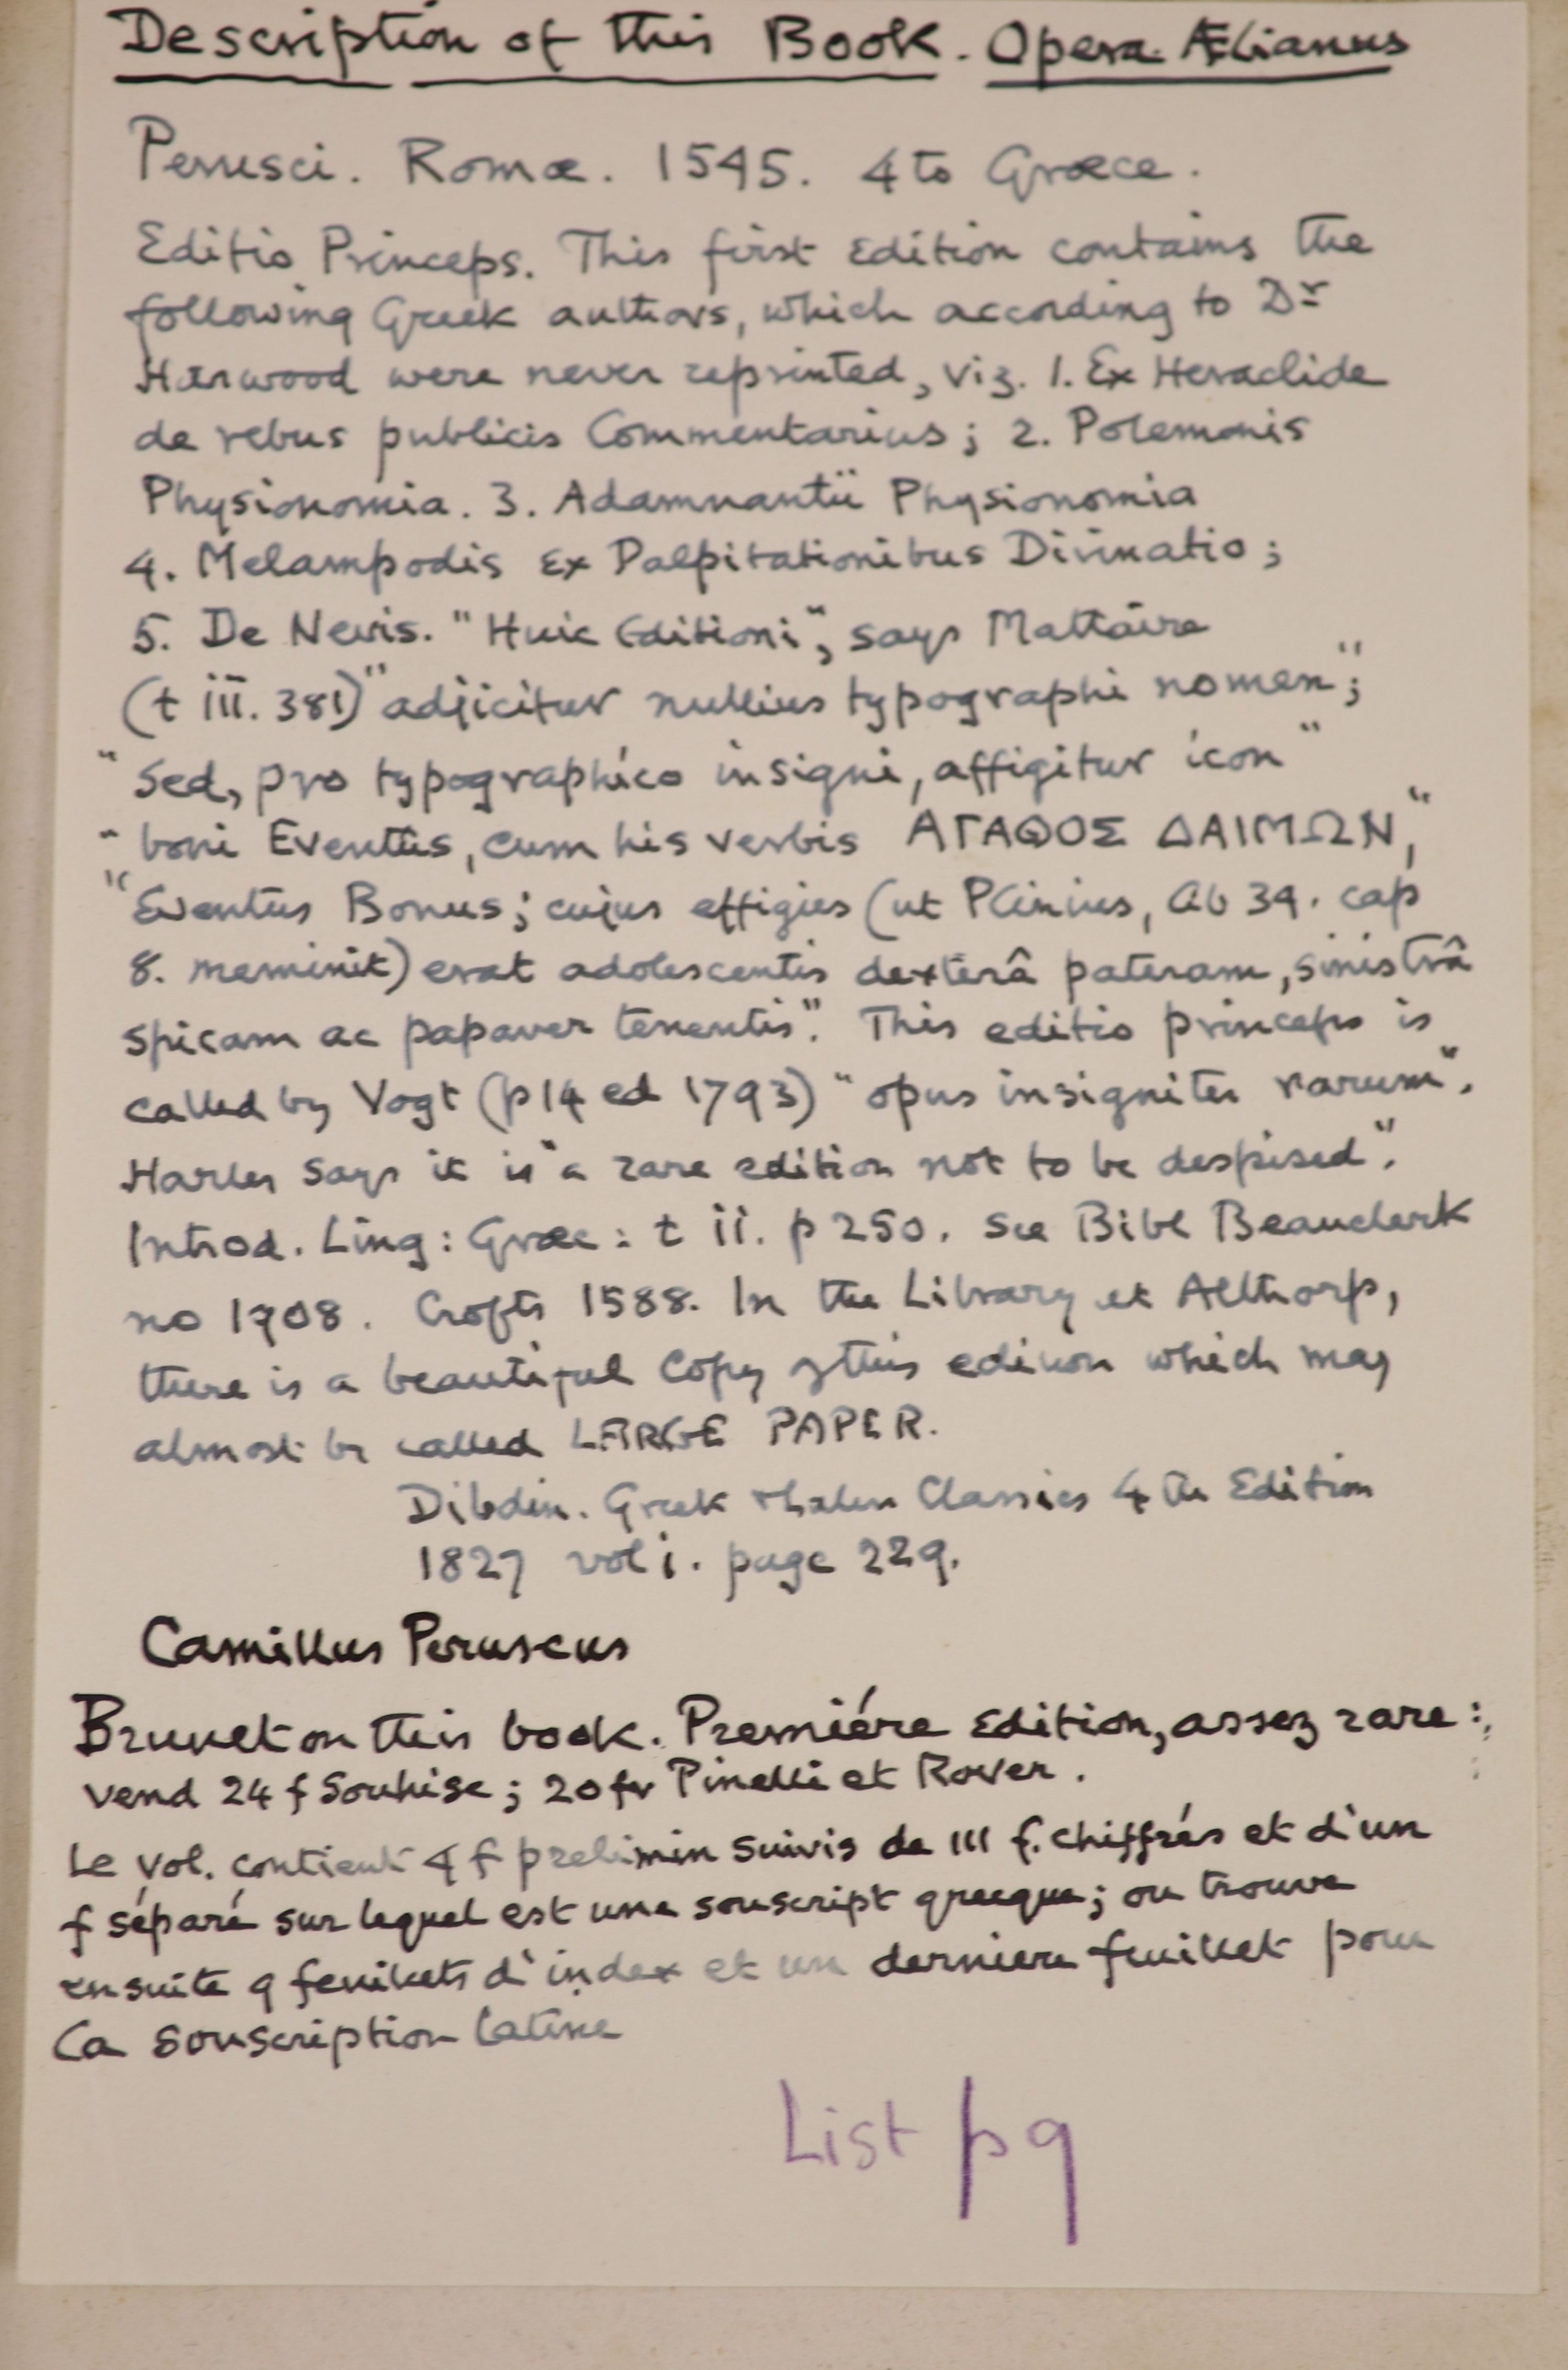 Description of this Book. Opera Ælianus
Perusci. Romæ. 1545. 4to Græce.
Editio Princeps. This first Edition contains the
following Greek authors, which according to Dr
Harwood were never reprinted, viz. 1. Ex Heraclide
de rebus publicis Commentarius; 2. Polemonis
Physionomia. 3. Adamnantii Physionomia
4. Melampodis Ex Palpitationibus Divinatio;
5. De Nevis. "Huic Editioni", says Mattaire
(t iii. 381) "adjicitur nullius typographi nomen";
"Sed, pro typographico insigni, affigitur icon"
"boni Eventûs, cum his verbis ΑΓΑΘΟΣ ΔΑΙΜΩΝ,"
"Eventus Bonus; cujus effigies (ut Plinius, lib 34. cap
8. meminit) erat adolescentis dexterâ pateram, sinistrâ
spicam ac papaver tenentis". This editio princeps is
called by Vogt (p 14 ed 1793) "opus insigniter rarum".
Harles says it is "a rare edition not to be despised".
Introd. Ling: Græc: t ii. p 250. See Bibl Beauclerk
no 1708. Crofts 1588. In the Library at Allthorp,
there is a beautiful Copy of this edition which may
almost be called LARGE PAPER.
Dibdin. Greek & Latin Classics 4th Edition
1827 vol i. page 229.
Camillus Peruscus
Brunet on this book. Premiére Edition, assez rare:
vend 24 f Soubise; 20 fr Pinelli et Rover.
Le vol. contient 4 f prelimin suivis de 111 f. chiffrés et d'un
f séparé sur lequel est une souscript grecque; on trouve
ensuite 9 feuillets d'index et un derniere feuillet pour
la souscription latine
List p 9